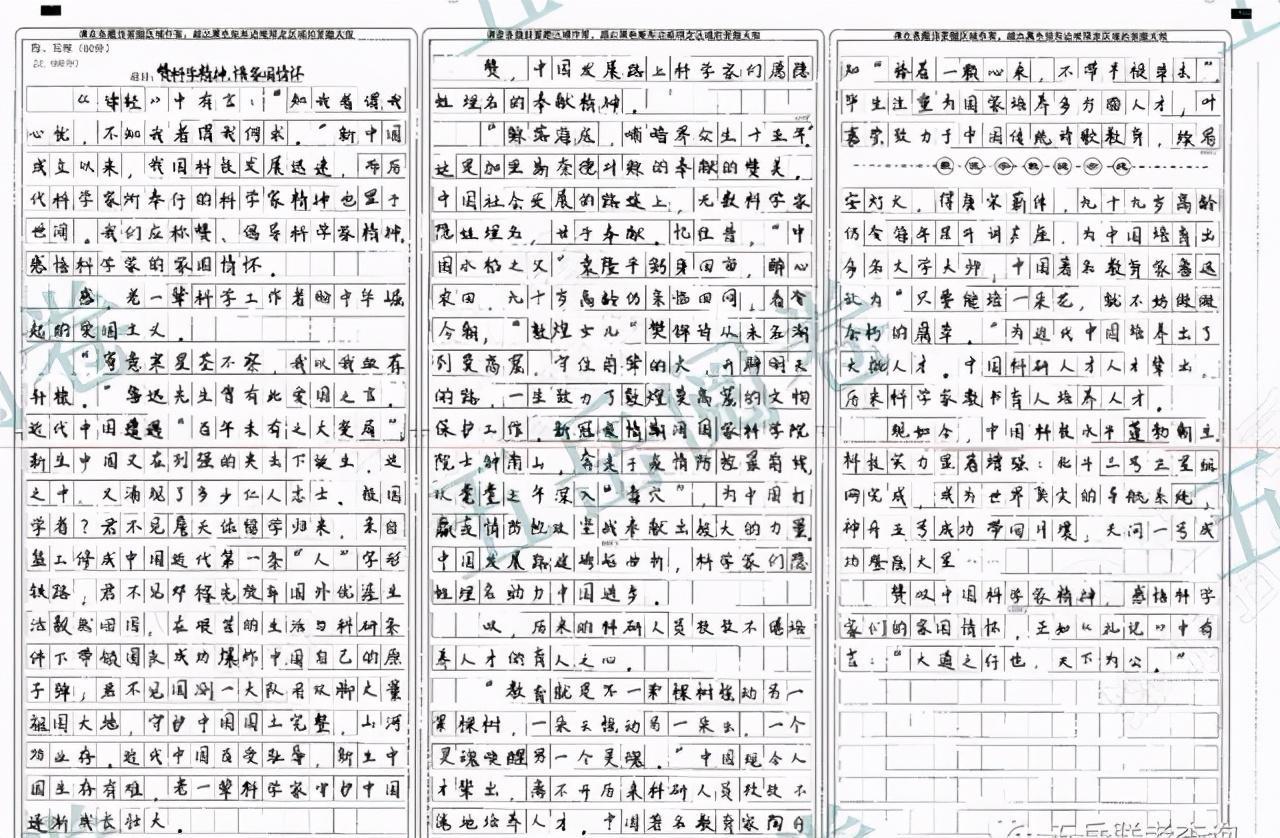 请在各题作答题区域作答，超出黑色矩形边框限定区域的答题无效
四、写作（60分）
题目：赞科学精神，怀家国情怀
《诗经》中有言：“知我者谓我
心忧，不知我者谓我何求。”新中国
成立以来，我国科技发展迅速，而历
代科学家所奉行的科学家精神也显于
世间。我们应称赞、倡导科学家精神，
感悟科学家的家国情怀。
感，老一辈科学工作者胸中华崛
起的爱国主义。
“寄意寒星荃不察，我以我血荐
轩辕。”鲁迅先生曾有此爱国之言。
近代中国遭遇“百年未有之大变局”，
新生中国又在列强的夹击下诞生，这
之中，又涌现了多少仁人志士、报国
学者？君不见詹天佑留学归来，亲自
监工修成中国近代第一条“人”字形
铁路，君不见邓稼先放弃国外优渥生
活毅然回国，在艰苦的生活与科研条
件下带领国人成功爆炸中国自己的原
子弹，君不见国测一大队用双脚丈量
祖国大地，守护中国国土完整，山河
为业存。近代中国百受耻辱，新生中
国生存有难，老一辈科学家守护中国
逐渐成长壮大。
请在各题作答题区域作答，超出黑色矩形边框限定区域的答题无效
赞，中国发展路上科学家们愿隐
姓埋名的奉献精神。
“鲸落海底，哺暗界众生十五年”
这是加里易奈德对鲸的奉献的赞美。
中国社会发展的路途上，无数科学家
隐姓埋名，甘于奉献。忆往昔，“中
国水稻之父”袁隆平躬身田亩，醉心
农田，九十岁高龄仍亲临田间，看今
今朝，“敦煌女儿”樊锦诗从未名湖
到莫高窟，守住前辈的火，开辟明天
的路，一生致力了敦煌莫高窟的文物
保护工作。新冠疫情期间国家科学院
院士钟南山，奔走于疫情防控最前线，
以耄耋之年深入“毒穴”，为中国打
赢疫情防控攻坚战奉献出极大的力量
中国发展路途崎岖曲折，科学家们隐
姓埋名助力中国进步。
以，历来的科研人员孜孜不倦培
养人才的育人之心。
“教育就是不一棵棵树摇动另一
棵棵树，一朵云摇动另一朵云，一个
灵魂唤醒另一个灵魂。”中国现今人
才辈出，离不开历来科研人员孜孜不
倦地培养人才。中国著名教育家陶行
请在各题作答题区域作答，超出黑色矩形边框限定区域的答题无效
知“捧着一颗心来，不带半根草去”，
毕生注重为国家培养多方面人才，叶
嘉莹致力于中国传统诗歌教育，续写
安灯火，得唐宋薪传，九十九岁高龄
仍会每年展开词声座，为中国培育出
多名文学大师，中国著名教育家鲁迅
认为“只要能培一朵花，就不妨做做
会朽的腐草。”为近代中国培养出了
大批人才。中国科研人才人才辈出。
历来科学家教书育人培养人才。
现如今，中国科技水平蓬勃树立，
科技实力显著增强：北斗三号卫星组
网完成，成为世界顶尖的导航系统，
神舟五号成功带回月壤，天问一号成
功登陆火星……
赞叹中国科学家精神，感悟科学
家们的家国情怀，正如《礼记》中有
言：“大道之行也，天下为公。”
五岳阅卷
五岳联考查询